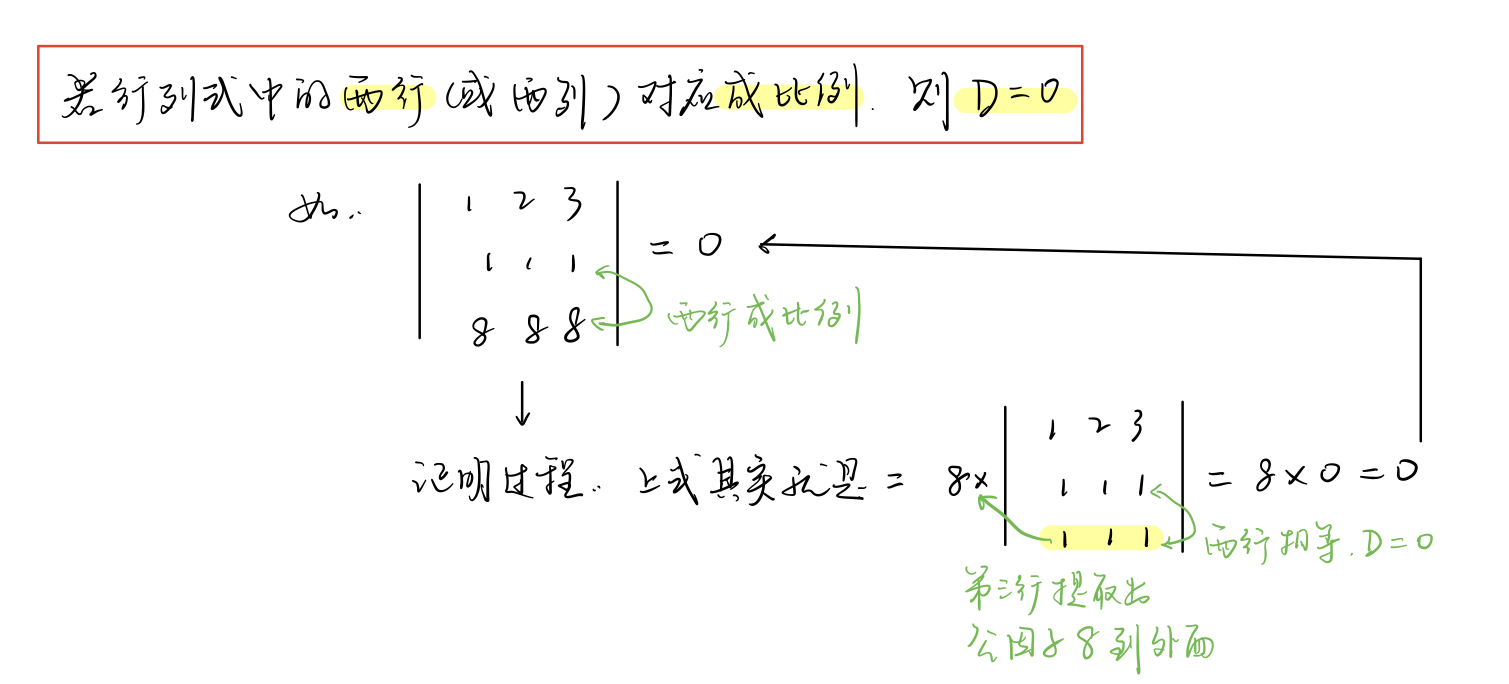 若行列式中的两行(或两列)对应成比例. 则 D=0
如:
1 2 3
1 1 1
8 8 8
= 0
两行成比例
证明过程: 上式其实就是 = 8×
1 2 3
1 1 1
1 1 1
= 8×0=0
两行相等. D=0
第三行提取出
公因子8到外面